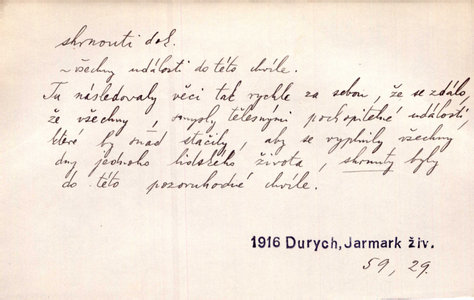 shrnouti dok.
~ všechny události do této chvíle.
Tu následovaly věci tak rychle za sebou, že se zdálo,
že všechny, smysly tělesnými pochopitelné události,
které by snad stačily, aby se vyplnily všechny
dny jednoho lidského života, shrnuty byly
do této pozoruhodné chvíle.
1916 Durych, Jarmark živ.
59, 29.